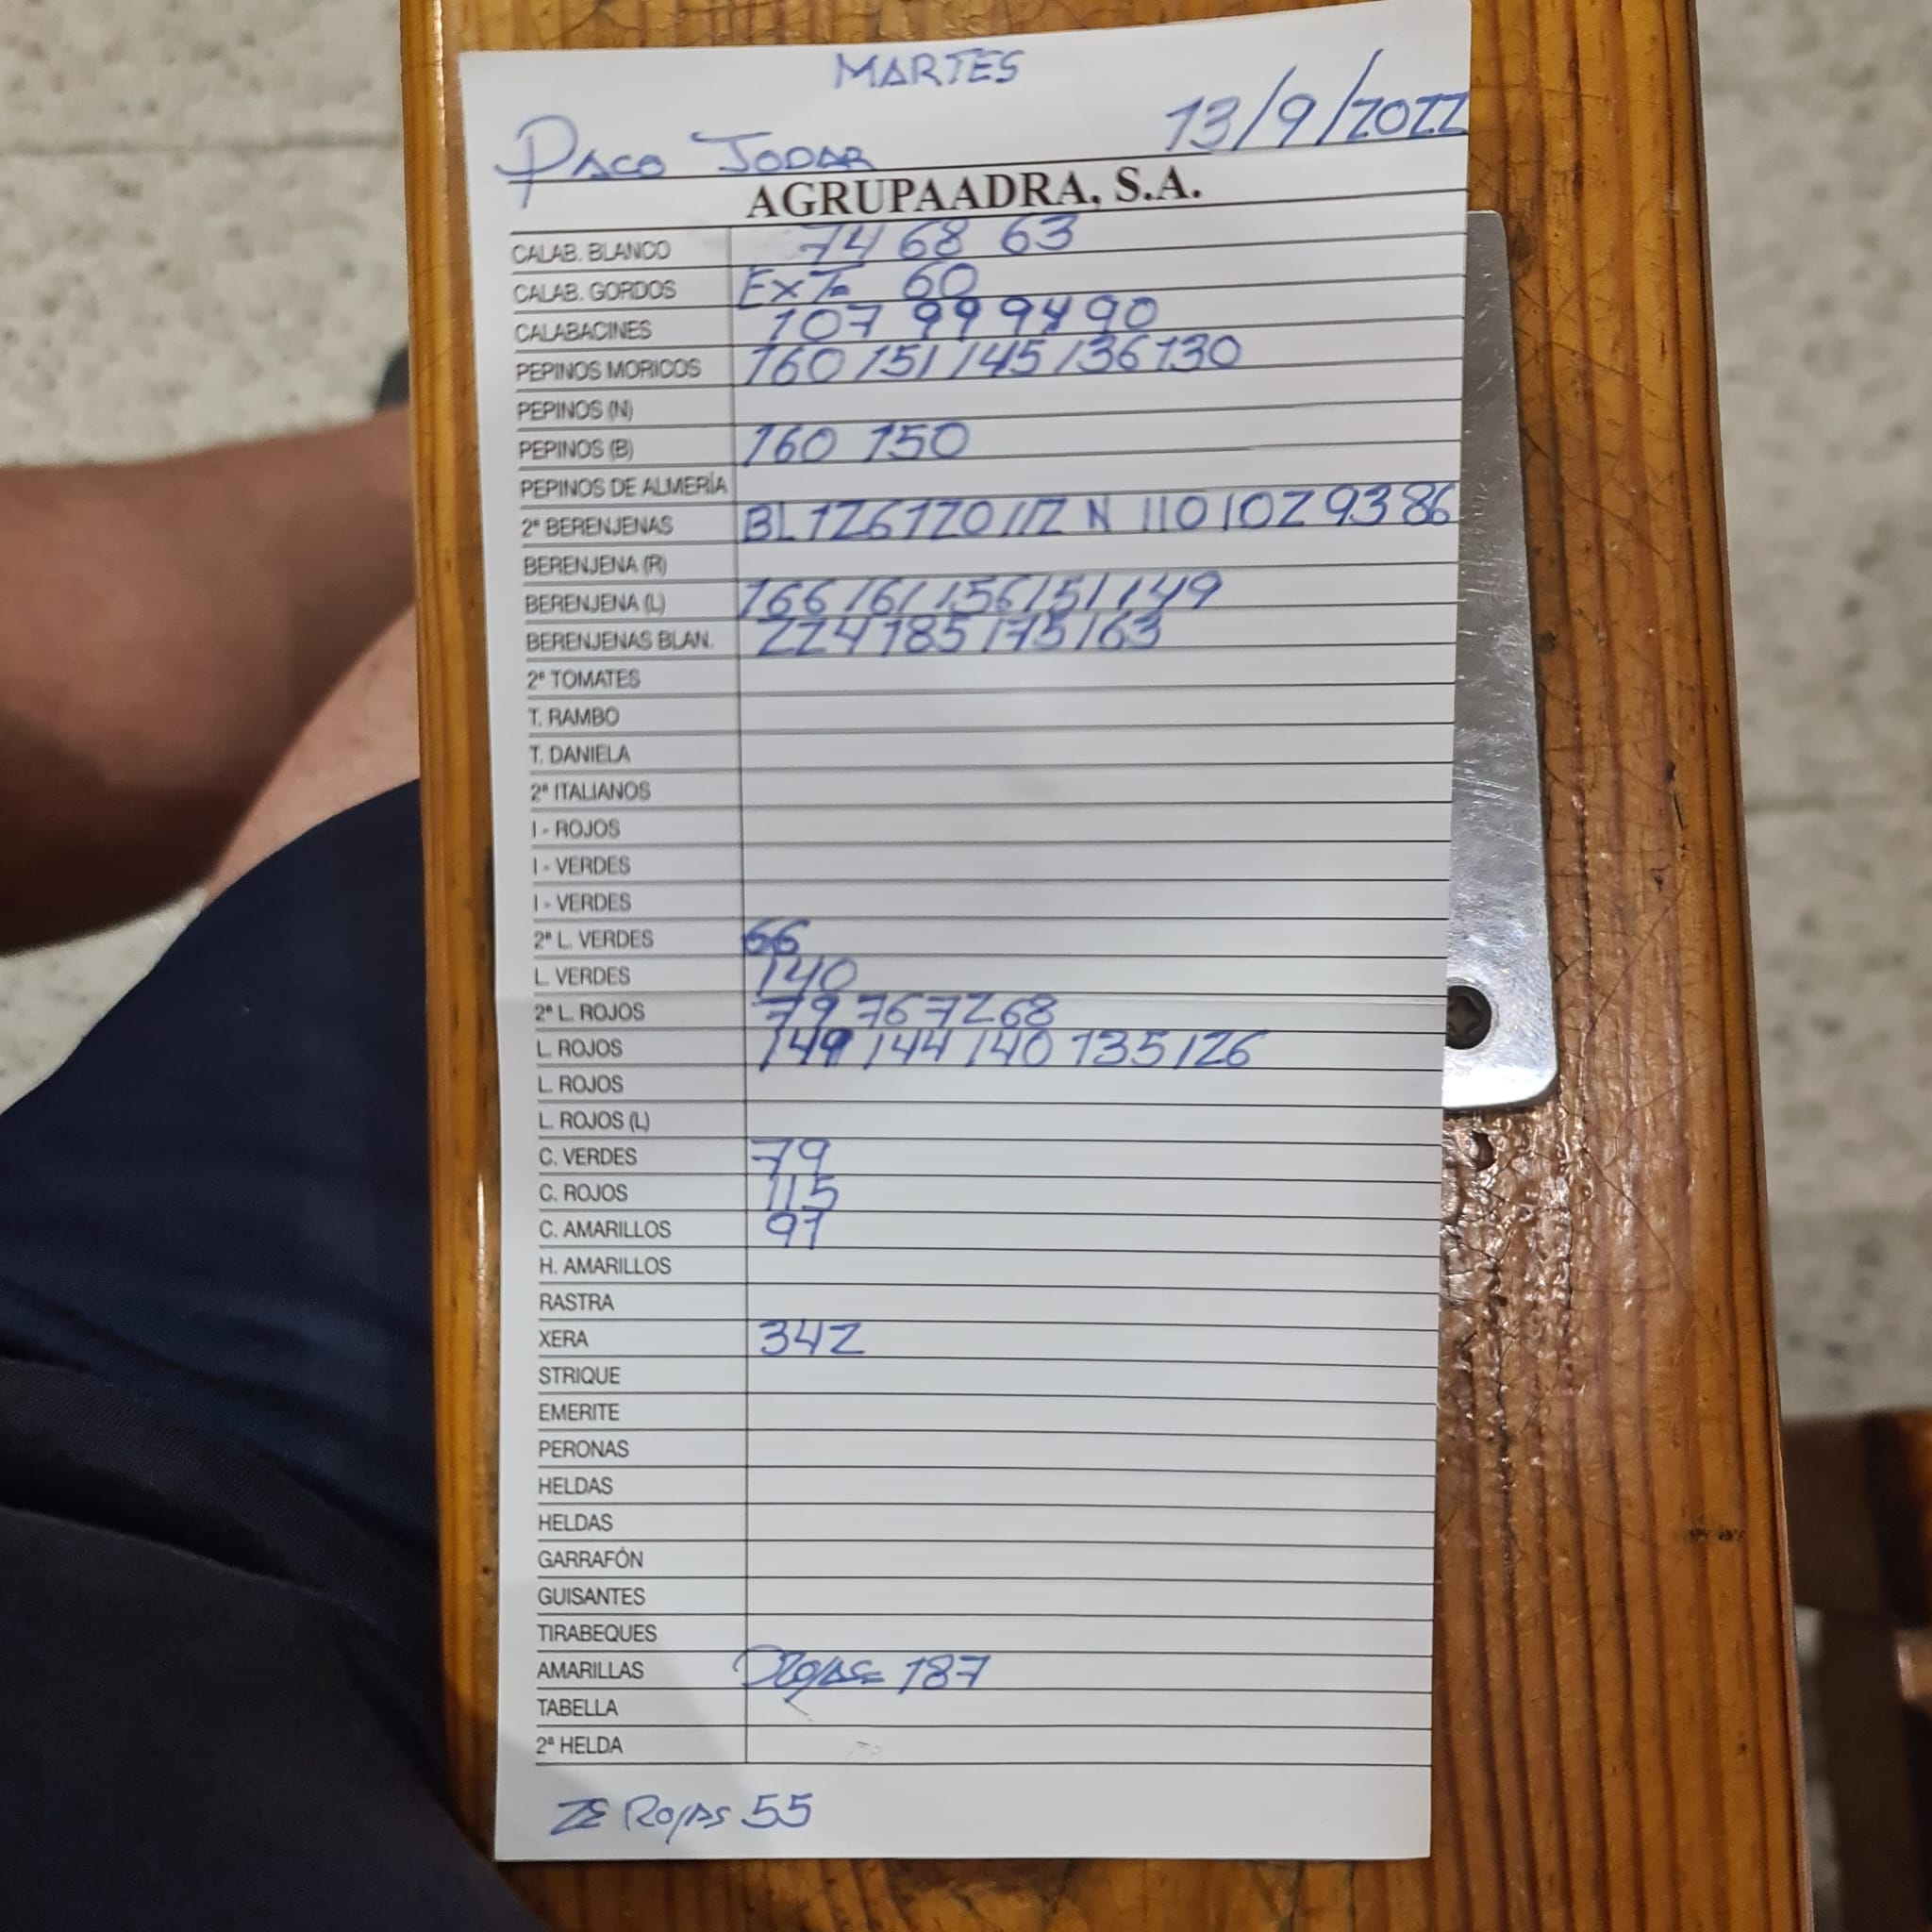 MARTES
PACO JODAR 13/9/2022
AGRUPAADRA, S.A.
CALAB. BLANCO 74 68 63
CALAB. GORDOS EXTª 60
CALABACINES 107 99 94 90
PEPINOS MORICOS 160 151 145 136 130
PEPINOS (N)
PEPINOS (B) 160 150
PEPINOS DE ALMERÍA
2ª BERENJENAS BL 126 120 112 N 110 102 93 86
BERENJENA (R)
BERENJENA (L) 166 161 156 151 149
BERENJENAS BLAN. 224 185 175 163
2ª TOMATES
T. RAMBO
T. DANIELA
2ª ITALIANOS
I - ROJOS
I - VERDES
I - VERDES
2ª L. VERDES 66
L. VERDES 140
2ª L. ROJOS 79 76 72 68
L. ROJOS 149 144 140 135 126
L. ROJOS
L. ROJOS (L)
C. VERDES 79
C. ROJOS 115
C. AMARILLOS 91
H. AMARILLOS
RASTRA
XERA 342
STRIQUE
EMERITE
PERONAS
HELDAS
HELDAS
GARRAFÓN
GUISANTES
TIRABEQUES
AMARILLAS 187
TABELLA
2ª HELDA
ROJAS 55